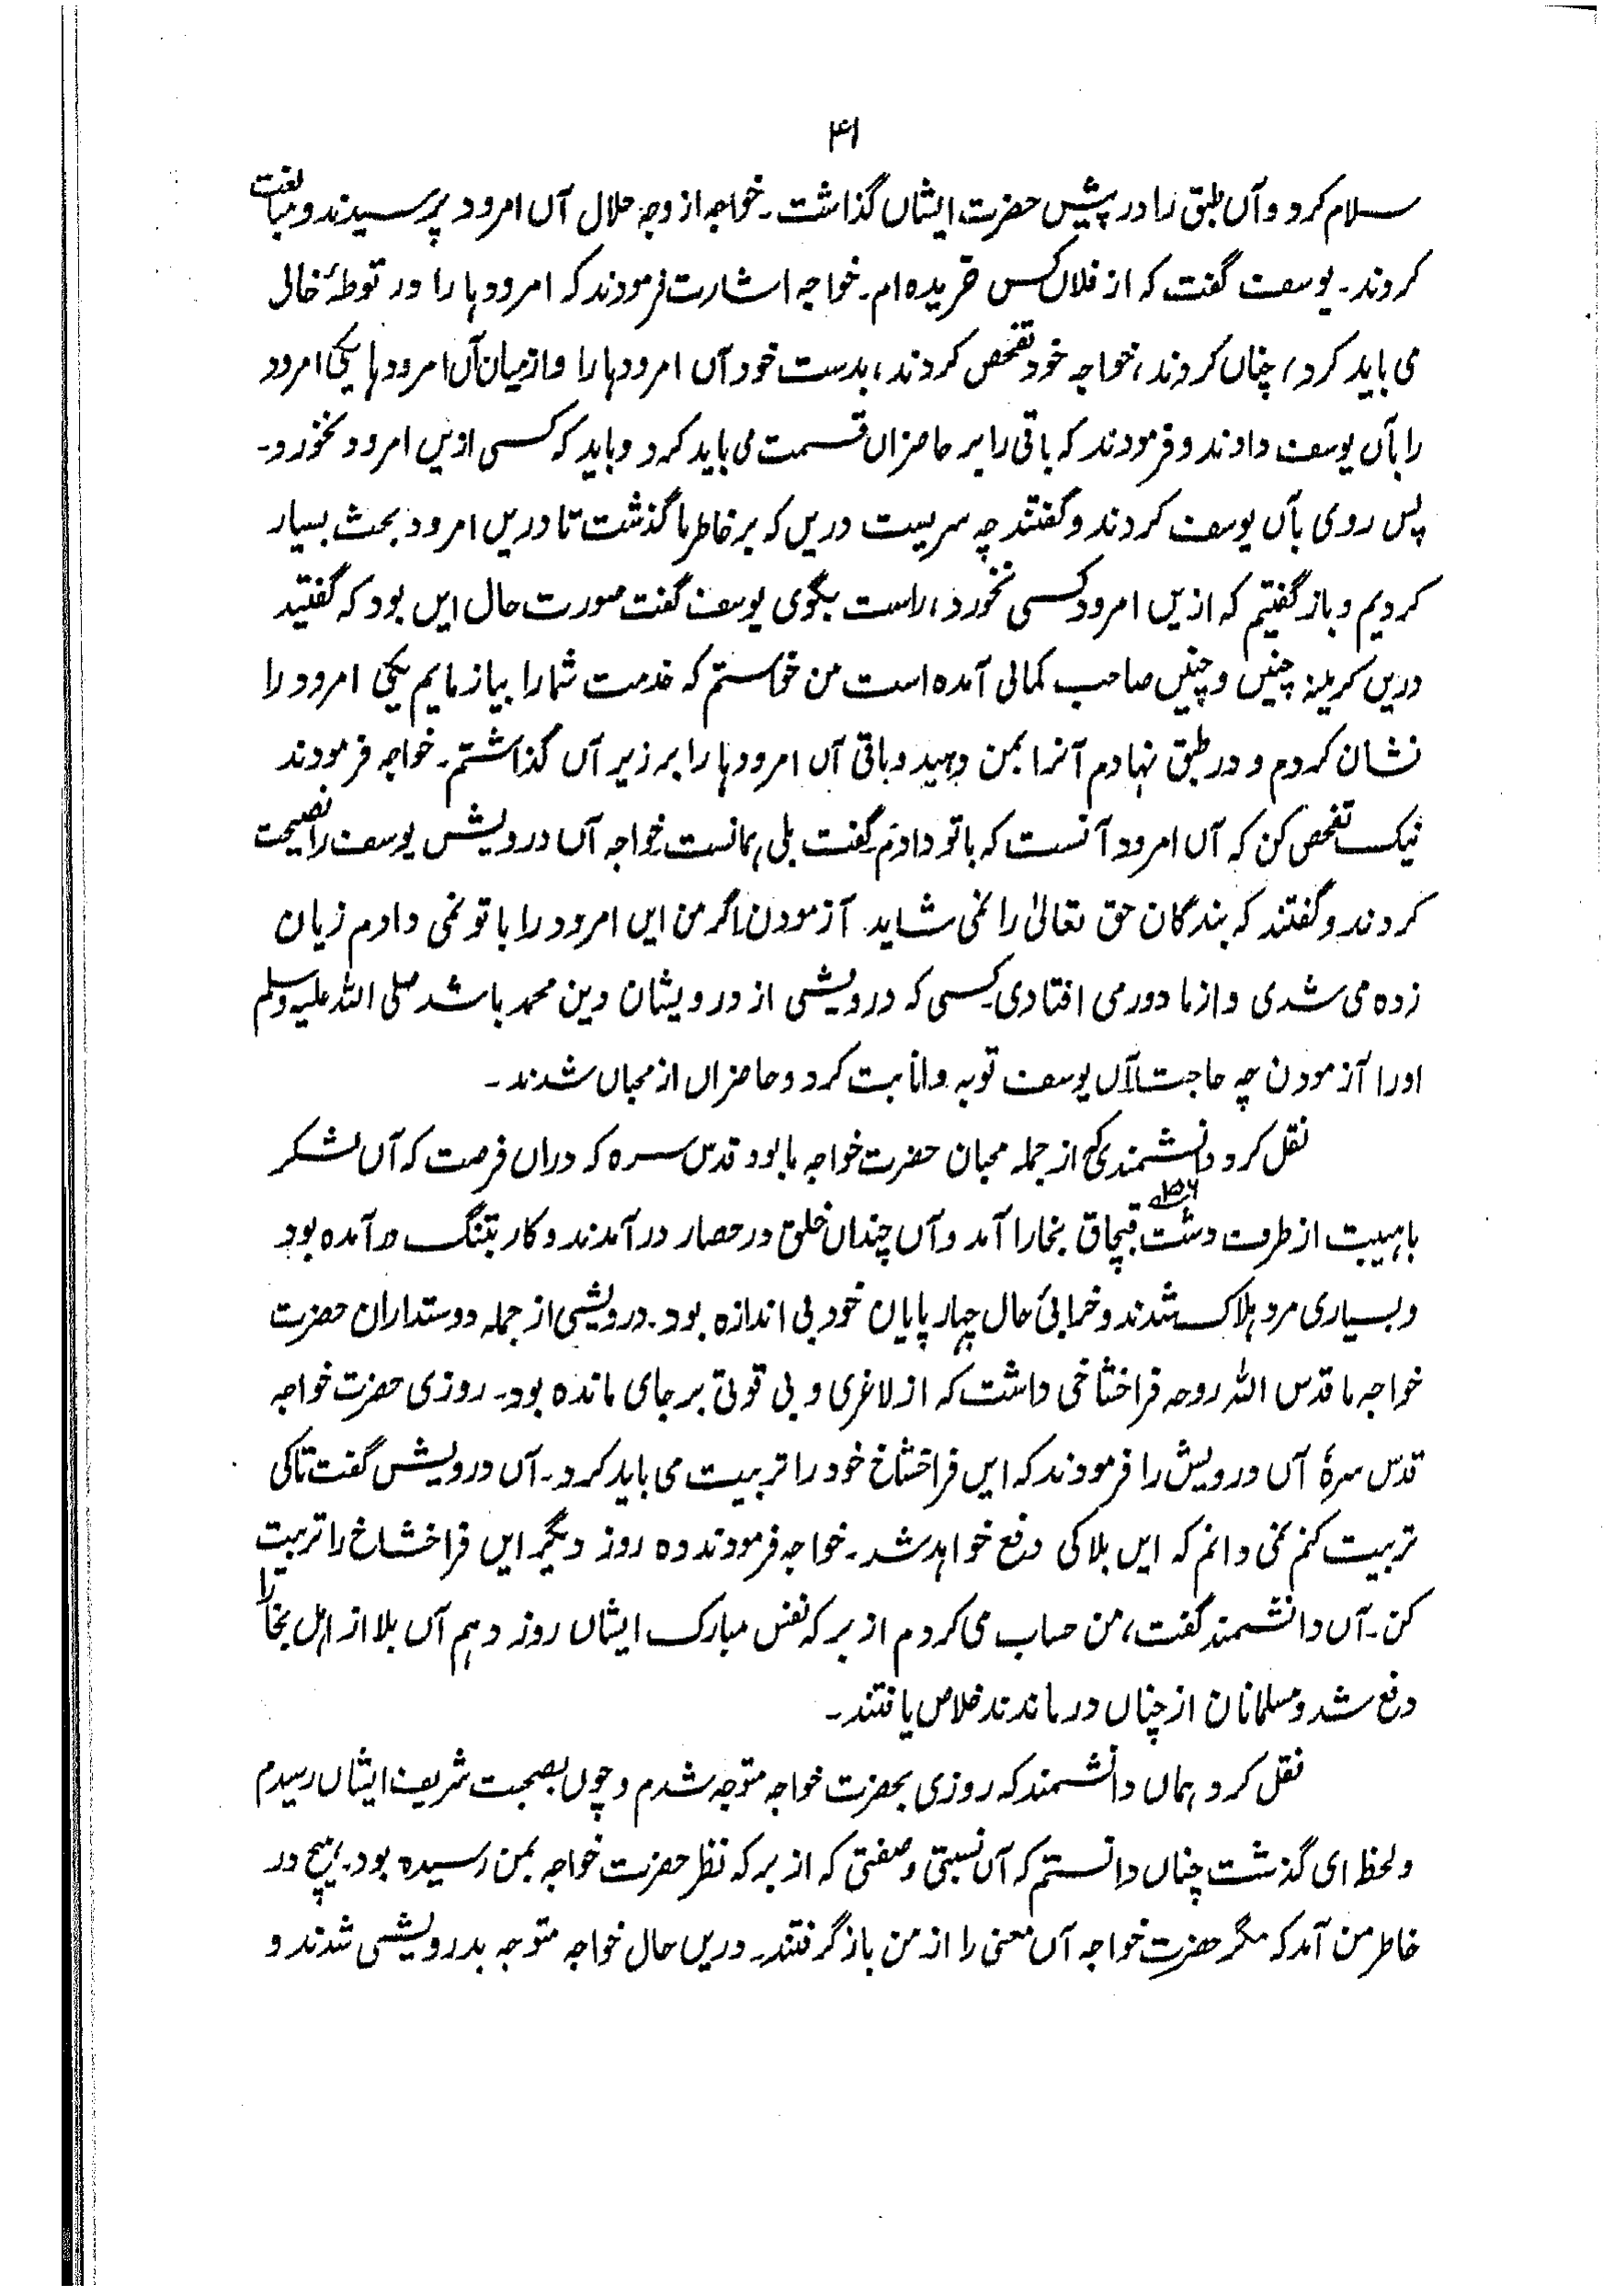 ۴۱
سلام کرد و آں طبق را در پیش حضرت ایشاں گذاشت۔ خواجہ از وجہ حلال آں امرود پرسیدند و مبالغت
کردند۔ یوسف گفت کہ از فلاں کس خریدہ ام۔ خواجہ اشارت فرمودند کہ امرودہا را در توطۂ خالی
می باید کرد، چناں کردند، خواجہ خود تفحص کردند، بدست خود آں امرودہا را و از میان آں امرودہا یکی امرود
را بآں یوسف دادند و فرمودند کہ باقی را بر حاضراں قسمت می باید کرد و باید کہ کسی ازیں امرود نخورد۔
پس روی بآں یوسف کردند و گفتند چہ سریست دریں کہ بر خاطر ما گذشت تا دریں امرود بحث بسیار
کردیم و باز گفتیم کہ ازیں امرود کسی نخورد، راست بگوی یوسف گفت صورت حال ایں بود کہ گفتید
دریں کرمینہ چنیں و چنیں صاحب کمالی آمدہ است من خواستم کہ خدمت شما را بیازمایم یکی امرود را
نشان کردم و در طبق نہادم آنرا بمن دہید و باقی آں امرودہا را بر زیر آں گذاشتم۔ خواجہ فرمودند
نیک تفحص کن کہ آں امرود آنست کہ باتو دادم۔ گفت بلی ہمانست۔ خواجہ آں درویش یوسف را نصیحت
کردند و گفتند کہ بندگان حق تعالیٰ را نمی شاید آزمودن۔ اگر من ایں امرود را باتو نمی دادم زیان
زدہ می شدی و از ما دور می افتادی۔ کسی کہ درویشی از درویشان دین محمد باشد صلی اللہ علیہ وسلم
اورا آزمودن چہ حاجت۔ آں یوسف توبہ و انابت کرد و حاضراں از محباں شدند۔
نقل کرد دانشمندی کہ از جملہ محبان حضرت خواجہ ما بود قدس سرہ کہ دراں فرصت کہ آں لشکر
باہیبت از طرف دشت قبچاق بخارا آمد و آں چنداں خلق در حصار در آمدند و کار بتنگ در آمدہ بود
و بسیاری مرد ہلاک شدند و خرابیٔ حال چہار پایان خود بی اندازہ بود۔ درویشی از جملہ دوستداران حضرت
خواجہ ما قدس اللہ روحہ فراخشاخی داشت کہ از لاغری و بی قوتی بر جای ماندہ بود۔ روزی حضرت خواجہ
قدس سرہٗ آں درویش را فرمودند کہ ایں فراخشاخ خود را تربیت می باید کرد۔ آں درویش گفت تاکی
تربیت کنم نمی دانم کہ ایں بلا کی دفع خواہد شد۔ خواجہ فرمودند دہ روز دیگر ایں فراخشاخ را تربیت
کن۔ آں دانشمند گفت، من حساب می کردم از برکہ نفس مبارک ایشاں روز دہم آں بلا از اہل بخارا
دفع شد و مسلمانان از چناں درماندند خلاص یافتند۔
نقل کرد ہماں دانشمند کہ روزی بحضرت خواجہ متوجہ شدم و چوں بصحبت شریف ایشاں رسیدم
و لحظہ ای گذشت چناں دانستم کہ آں نسبتی و صفتی کہ از برکہ نظر حضرت خواجہ بمن رسیدہ بود۔ ہیچ در
خاطر من آمد کہ مگر حضرت خواجہ آں معنی را از من باز گرفتند۔ دریں حال خواجہ متوجہ بدرویشی شدند و